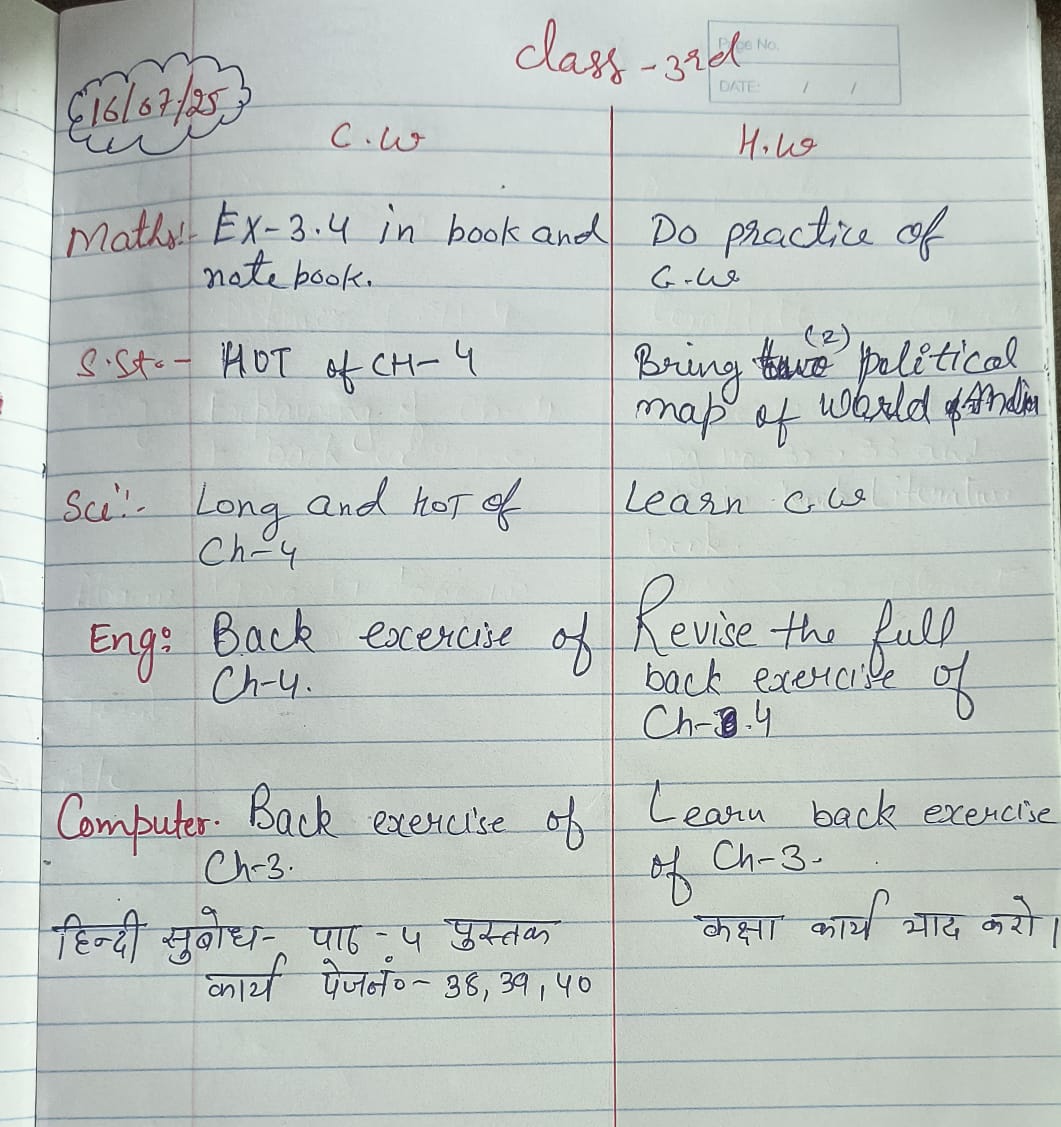 class - 3rd
Page No.
DATE: / /
16/07/25
C.W
H.W
Maths:- Ex-3.4 in book and
note book.
Do practice of
C.W
S.St. - HOT of CH-4
Bring (2) political
map of World & India
Sci:- Long and HOT of
Ch-4
Learn C.W
Eng: Back excercise of
Ch-4.
Revise the full
back exercise of
Ch-4
Computer. Back exercise of
Ch-3.
Learn back exercise
of Ch-3.
हिन्दी सुबोध- पाठ - 5 पुस्तक
कार्य पेज नं०- 38, 39, 40
कक्षा कार्य याद करो।